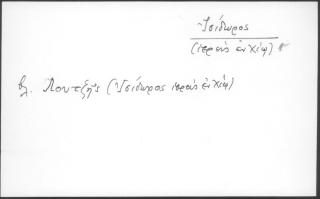 Ἰσίδωρος
(ἱερεὺς ἐν Χίῳ)
βλ. Λουτζῆς (Ἰσίδωρος ἱερεὺς ἐν Χίῳ)